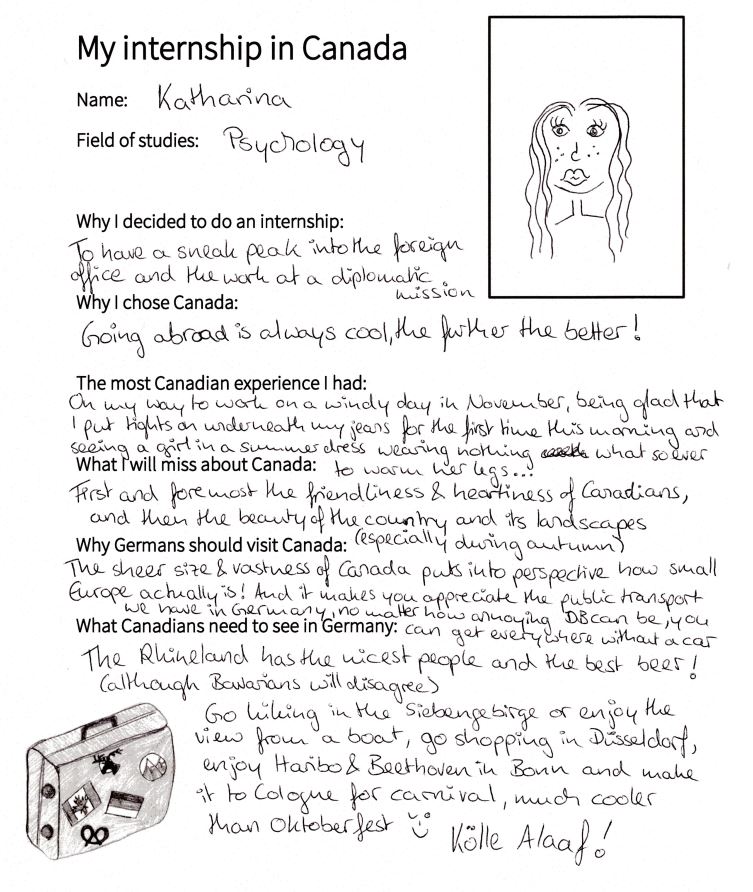 My internship in Canada
Name: Katharina
Field of studies: Psychology
Why I decided to do an internship:
To have a sneak peak into the foreign
office and the work at a diplomatic
mission
Why I chose Canada:
Going abroad is always cool, the further the better!
The most Canadian experience I had:
On my way to work on a windy day in November, being glad that
I put tights on underneath my jeans for the first time this morning and
seeing a girl in a summer dress wearing nothing what so ever
to warm her legs...
What I will miss about Canada:
First and foremost the friendliness & heartiness of Canadians,
and then the beauty of the country and its landscapes
(especially during autumn)
Why Germans should visit Canada:
The sheer size & vastness of Canada puts into perspective how small
Europe actually is! And it makes you appreciate the public transport
we have in Germany, no matter how annoying DB can be, you
can get everywhere without a car
What Canadians need to see in Germany:
The Rhineland has the nicest people and the best beer!
(although Bavarians will disagree)
Go hiking in the Siebengebirge or enjoy the
view from a boat, go shopping in Düsseldorf,
enjoy Haribo & Beethoven in Bonn and make
it to Cologne for carnival, much cooler
than Oktoberfest
Kölle Alaaf!